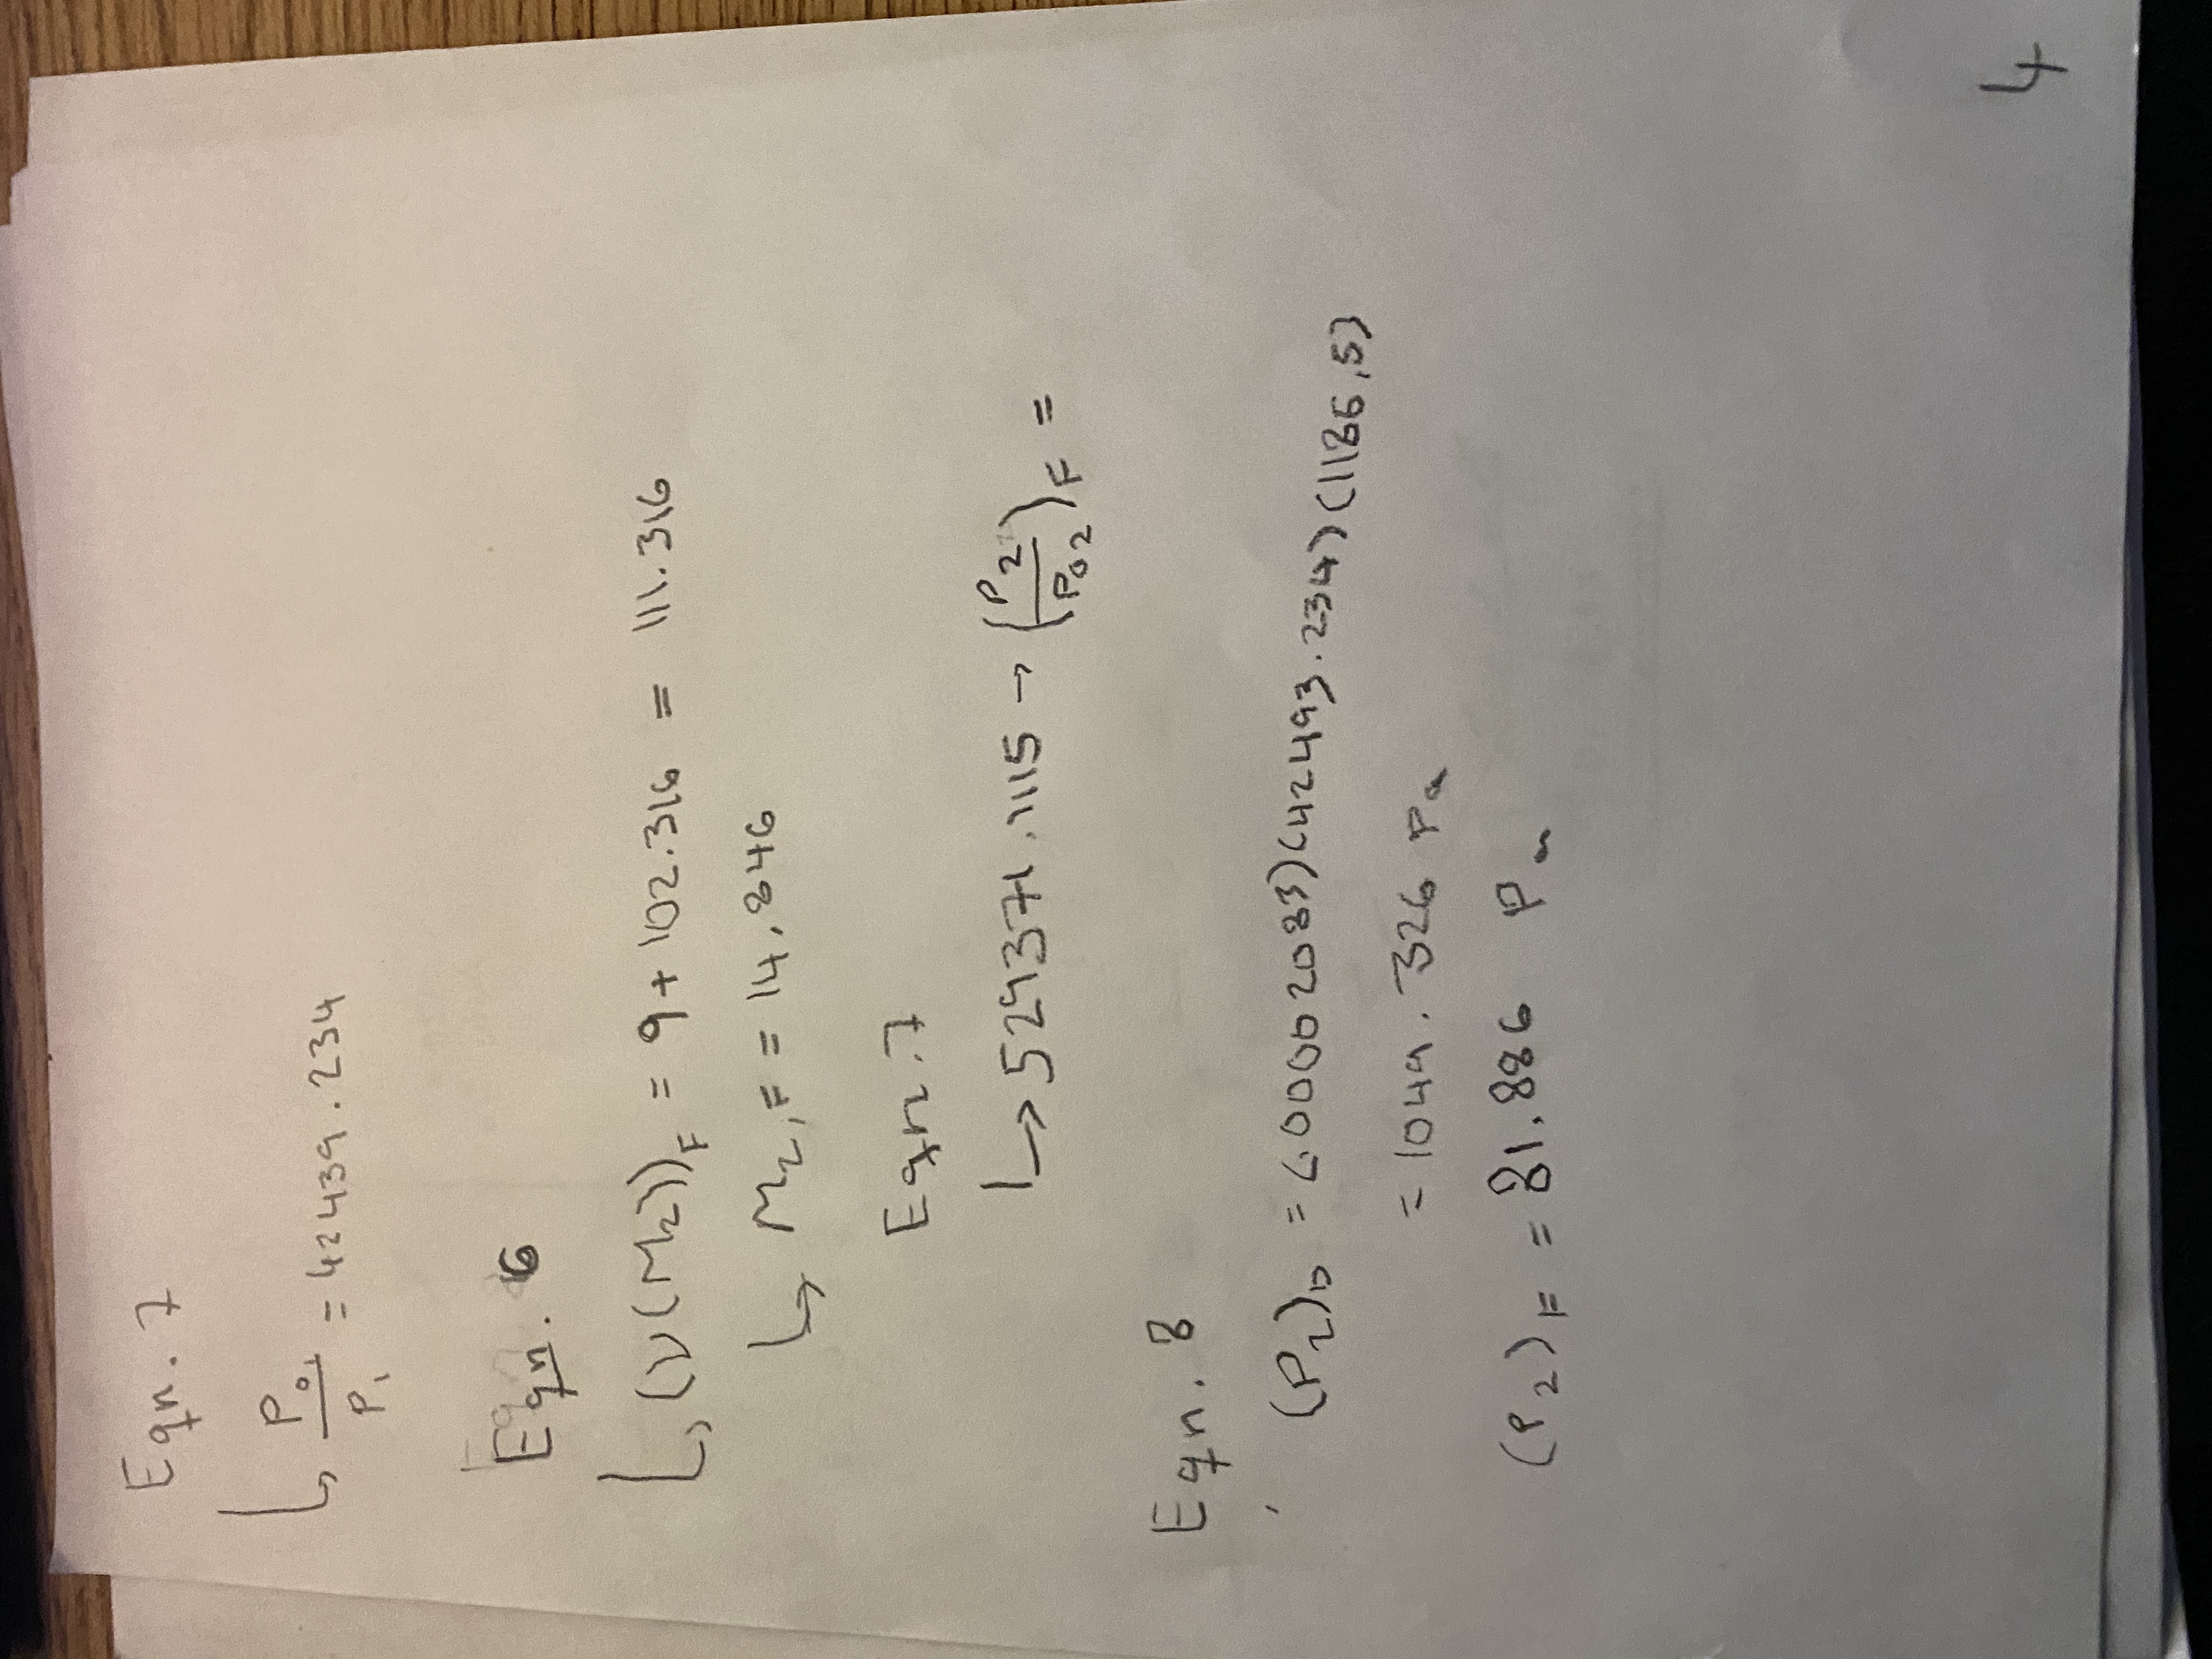 Eqn. 7
↳ P₀₁ / P₁ = 42439.234
Eqn. 6
↳ (ν(M₂))_F = 9 + 102.316 = 111.316
↳ M₂,F = 14.846
Eqn. 7
↳ 529371.1115 → (P₂ / P₀₂)_F =
Eqn. 8
(P₂)_D = (.00002083)(42493.234)(1186.5)
= 1049.326 Pa
(P₂)_F = 81.886 Pa
4